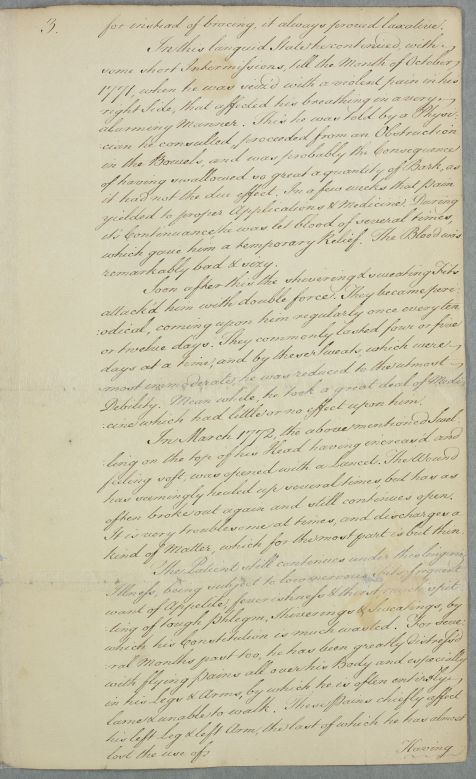 3.
for instead of bracing, it always proved laxative.
In this languid State he continued, with
some short Intermissions, till the Month of October
1771, when he was seiz'd with a violent pain in his
right Side, that affected his breathing in a very
alarming Manner. This he was told by a Physi-
cian he consulted, proceeded from an Obstruction
in the Bowels, and was probably the Consequence
of having swallowed so great a quantity of Bark, as
it had not the due effect. In a few weeks that Pain
yielded to proper Applications & Medicine. During
it's Continuance he was let blood of several times,
which gave him a temporary Relief. The Blood was
remarkably bad & sizy.
Soon after this the shivering & sweating Fits
attack'd him with double force. They became peri-
odical, coming upon him regularly once every ten
or twelve days. They commonly lasted four or five
days at a time, and by these Sweats, which were
most immoderate, he was reduced to the utmost
Debility. Mean while, he took a great deal of Medi-
cine which had little or no effect upon him.
In March 1772, the above mentioned Swel-
ling on the top of his Head having increas'd and
feeling soft, was opened with a Lancet. The Wound
has seemingly healed up several times, but has as
often broke out again and still continues open.
It is very troublesome at times, and discharges a
kind of Matter, which for the most part is but thin.
The Patient still continues under this
Illness, being subject to low nervous fits, frequent
want of Appetite, feverishness & thirst, much spit-
ting of tough Phlegm, Shiverings & Sweatings, by
which his Constitution is much wasted. For seve-
ral Months past too, he has been greatly distress'd
with flying Pains all over his Body and especially
in his Legs & Arms, by which he is often entirely
lame & unable to walk. These Pains chiefly affect
his left Leg & left Arm, the last of which he has almost
lost the use of.
Having